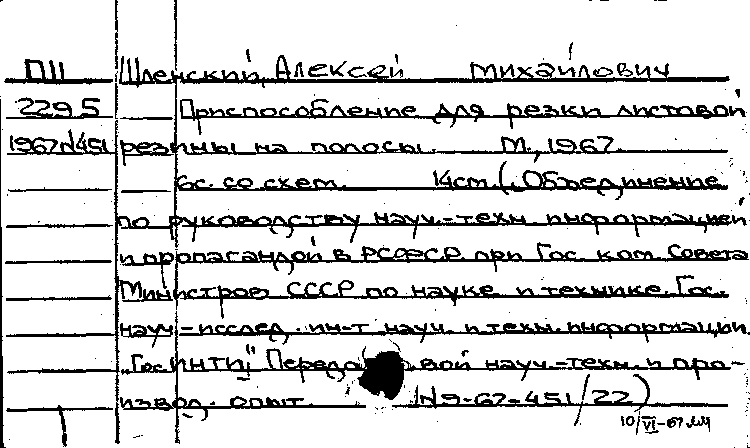 П11 Шленский, Алексей Михайлович
2295 Приспособление для резки листовой
1967N451 резины на полосы. М., 1967.
6с. со схем. 14см. (Объединение
по руководству науч.-техн. информацией
и пропагандой в РСФСР при Гос. ком. Совета
Министров СССР по науке и технике. Гос.
науч.-исслед. ин-т науч. и техн. информации
"ГосИНТИ" Передовой науч.-техн. и про-
извод. опыт. N9-67-451/22)
10/VI-67